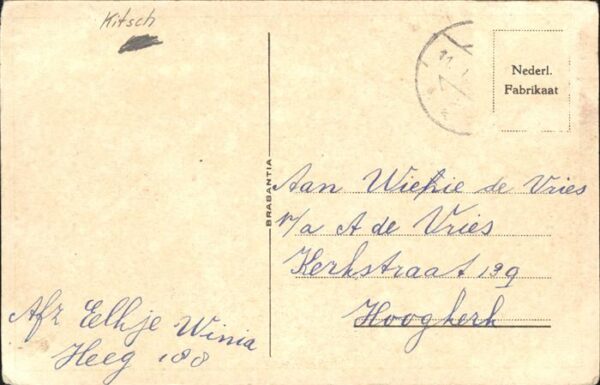 Kitsch
11
7
Nederl.
Fabrikaat
BRABANTIA
Aan Wiekie de Vries
p/a A de Vries
Kerkstraat 139
Hoogkerk
Afz Eelkje Winia
Heeg 188